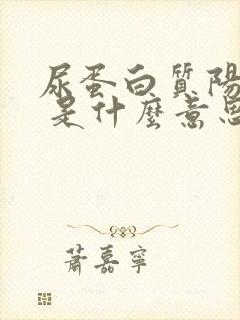 尿蛋白質陽
是什麼意思
蕭嘉寧